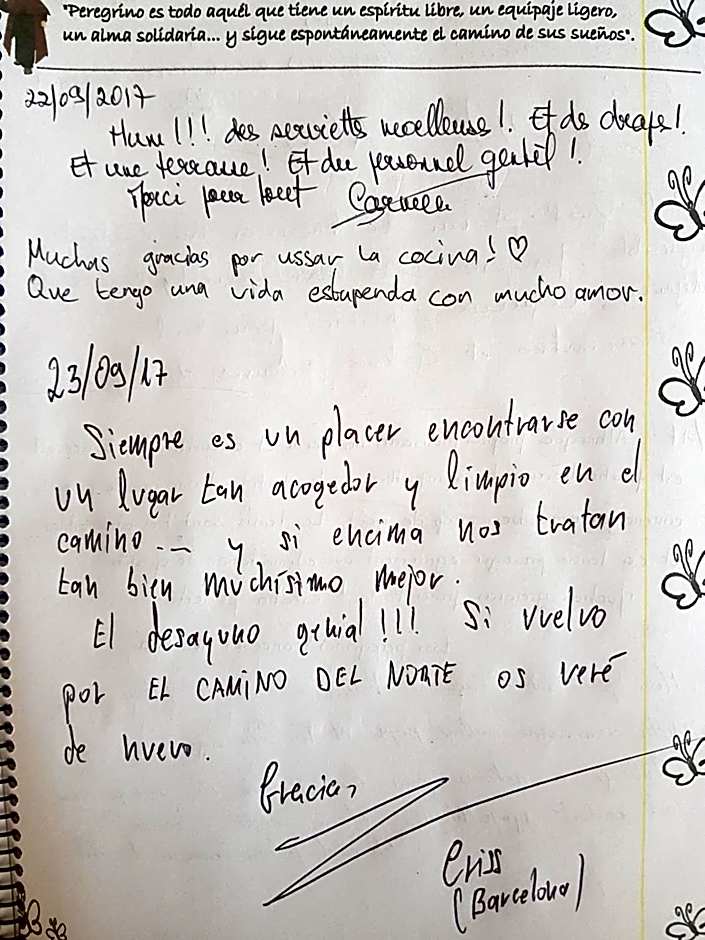 "Peregrino es todo aquél que tiene un espíritu libre, un equipaje ligero,
un alma solidaria... y sigue espontáneamente el camino de sus sueños".
22/09/2017
Hum !!! des serviettes moelleuse !. Et de draps !.
Et une terrasse ! Et du personnel gentil !.
Merci pour tout
Muchas gracias por ussar la cocina! ♡
Que tengo una vida estupenda con mucho amor.
23/09/17
Siempre es un placer encontrarse con
un lugar tan acogedor y limpio en el
camino... y si encima nos tratan
tan bien muchísimo mejor.
El desayuno genial!!! Si vuelvo
por EL CAMINO DEL NORTE os veré
de nuevo.
Gracias
Criss
(Barcelona)